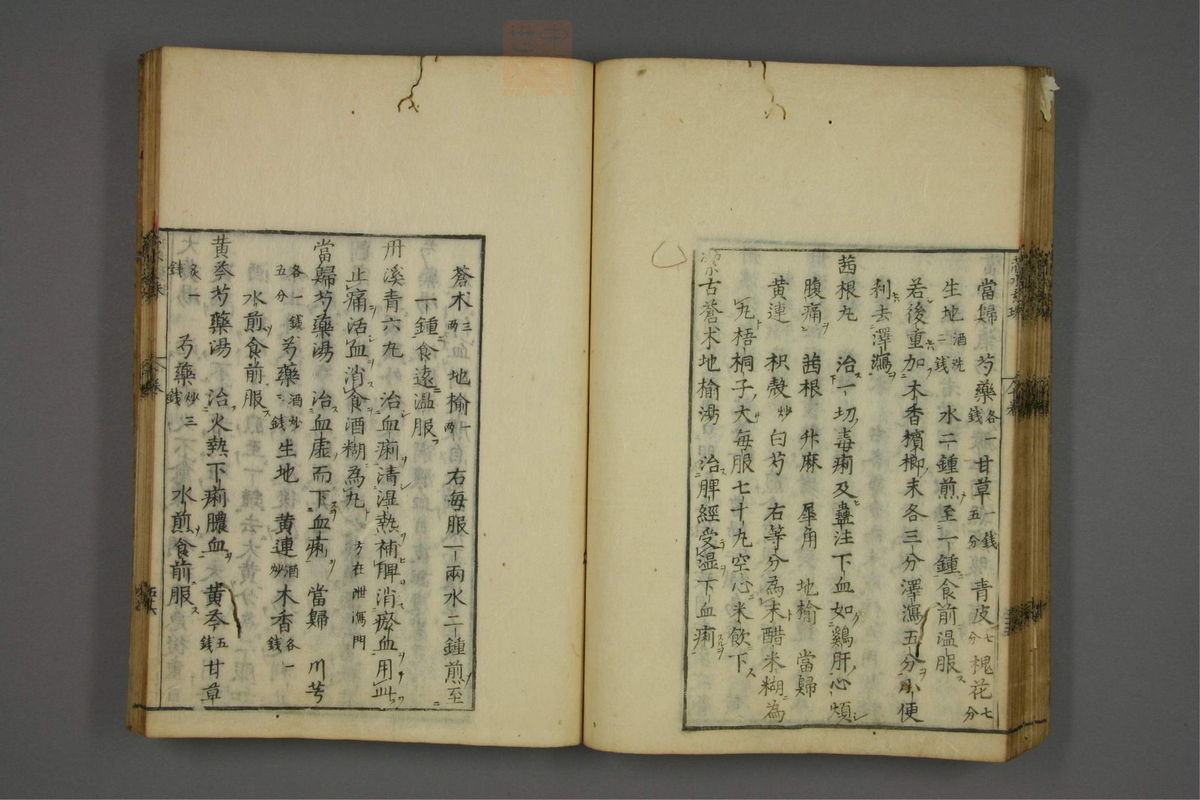 當歸 芍藥各一錢 甘草一錢五分 青皮七分 槐花七分
生地酒洗二錢 水二鍾煎至一鍾食前温服
若後重加木香檳榔末各三分澤瀉五分小便
利去澤瀉
茜根丸 治一切毒痢及蠱注下血如鷄肝心煩
腹痛 茜根 升麻 犀角 地榆 當歸
黄連 枳殻炒 白芍 右等分為末醋米糊為
丸梧桐子大每服七十丸空心米飲下
潔古蒼术地榆湯 治脾經受湿下血痢
蒼术三兩 地榆一兩 右每服一兩水二鍾煎至
一鍾食遠温服
丹溪青六丸 治血痢清湿熱補脾消瘀血用此
止痛活血消食酒糊為丸 方在泄瀉門
當歸芍藥湯 治血虚而下血痢 當歸 川芎
各一錢五分 芍藥酒炒二錢 生地 黄連酒炒 木香各一錢
水煎食前服
黄芩芍藥湯 治火熱下痢膿血 黄芩五錢 甘草
炙一錢 芍藥炒三錢 水煎食前服